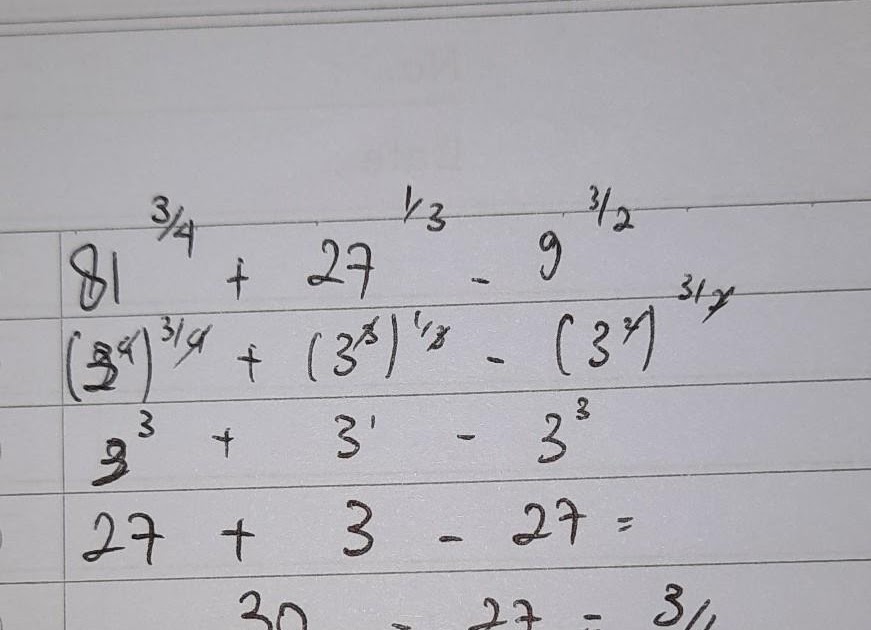 81^(3/4) + 27^(1/3) - 9^(3/2)
(3^4)^(3/4) + (3^3)^(1/3) - (3^2)^(3/2)
3^3 + 3^1 - 3^3
27 + 3 - 27 =
30 - 27 = 3//